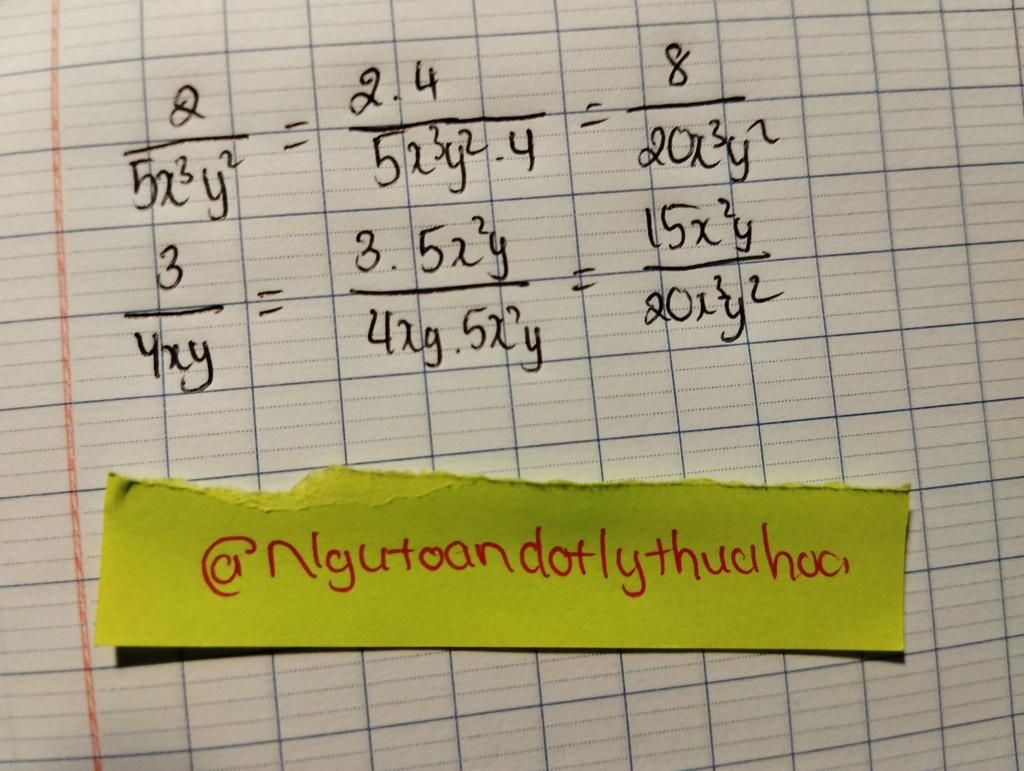 2/(5x³y²) = (2.4)/(5x³y².4) = 8/(20x³y²)
3/(4xy) = (3.5x²y)/(4xy.5x²y) = (15x²y)/(20x³y²)
@Ngutoandotlythuahoa